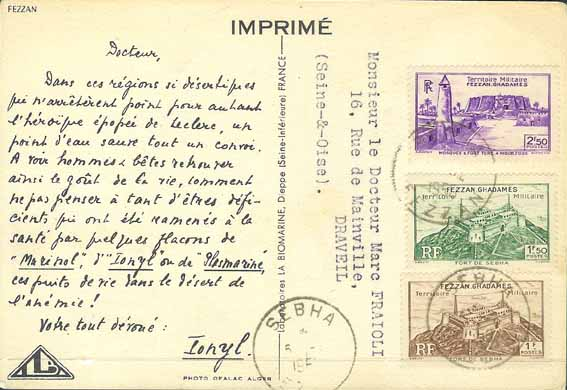 FEZZAN
IMPRIMÉ
Docteur,
Dans ces régions si désertiques
qui n'arrêtèrent point pour autant
l'héroïque épopée de Leclerc, un
point d'eau sauve tout un convoi.
A voir hommes & bêtes retrouver
ainsi le goût de la vie, comment
ne pas penser à tant d'êtres défi-
cients qui ont été ramenés à la
santé par quelques flacons de
"Marinol", d'"Ionyl" ou de "Plasmarine",
ces puits de vie dans le désert de
l'anémie!
Votre tout dévoué:
Ionyl.
LB
PHOTO OFALAC ALGER
Laboratoires LA BIOMARINE, Dieppe (Seine-Inférieure) FRANCE
Monsieur le Docteur Marc FRAIOLI
16, Rue de Mainville,
DRAVEIL
(Seine-&-Oise).
RF
Territoire Militaire
FEZZAN.GHADAMÈS
2F50
POSTES
FEZZAN
FEZZAN.GHADAMÈS
Territoire Militaire
RF
1F50
POSTES
FORT DE SEBHA
FEZZAN.GHADAMÈS
Territoire Militaire
RF
1F
POSTES
FORT DE SEBHA
SEBHA
SEBHA